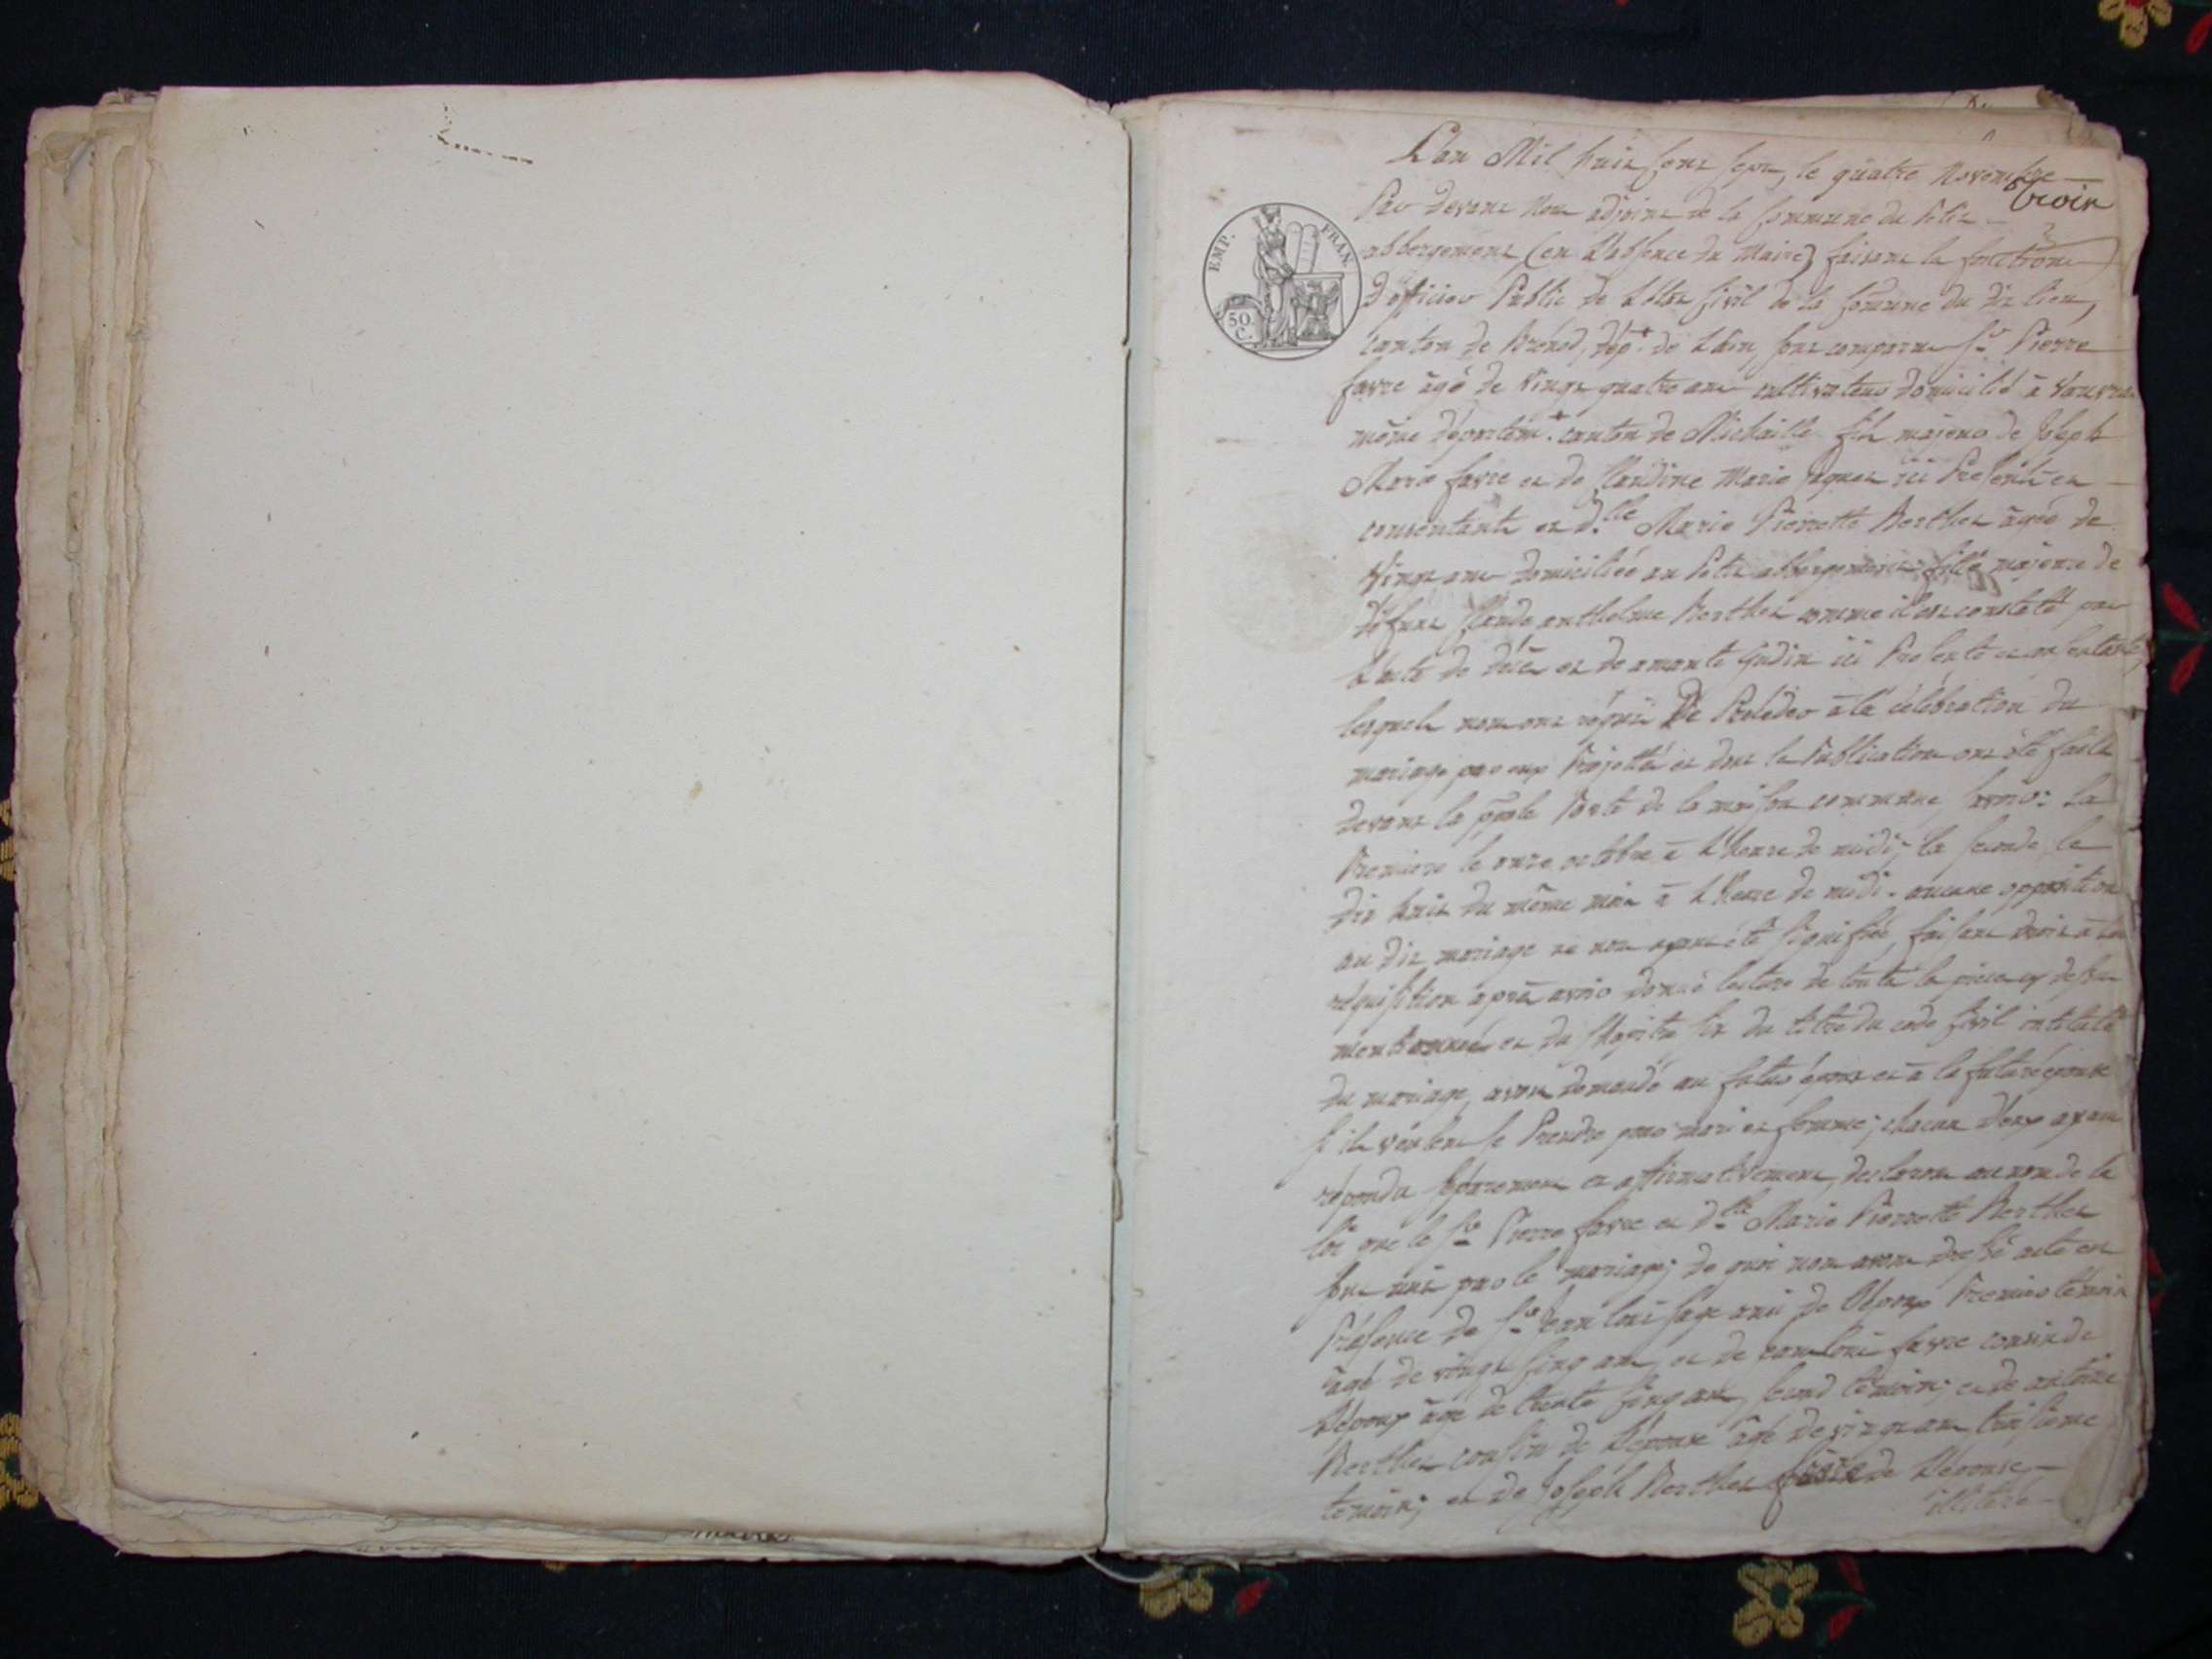 L'an Mil huit Cent sept, le quatre Novembre
troix
Par devant Nous adjoint de la Commune du Petit
EMP. FRAN.
50 C.
abbergement (en L'absence du Maire) faisant la fonctions
D'officier Public de L'état Civil de la Comune du dit lieu,
Canton de Brénod, dépt. de L'Ain, sont comparus Sr Pierre
favre âgé de vingt quatre ans cultivateur domicilié à
même départemt. canton de Michaille fils majeur de Joseph
Marie favre et de Claudine Marie ici Présents et
consentants et dlle Marie Pierrette Berthet âgée de
Vingt ans domiciliée au Petit abbergement fille majeure de
défunt Claude anthelme Berthet comme il est constaté par
L'acte de décès et de amante ici Présente et consentante,
lesquels nous ont réquis De Procéder à la célébration du
mariage par eux Projetté et dont les Publications ont été faites
devant la pple Porte de la maison commune, savoir: La
Premiere le onze octobre à L'heure de midi; la seconde le
dix huit du même mois à L'heure de midi. aucune opposition
au dit mariage ne nous ayant été signifiée, faisant droit à leur
réquisition après avoir donné lecture de toutes les pièces cy dessus
mentionnées et du Chapitre six du titre du code Civil intitulé
du mariage, avons demandé au futur époux et à la future épouse
s'ils veulent se Prendre pour mari et femme; chacun d'eux ayant
répondu séparement et affirmativement, declarons au nom de la
loi que le Sr Pierre favre et dlle Marie Pierrette Berthet
sont unis par le mariage; de quoi nous avons dressé acte en
Présence de Sr Jean louis ami de L'époux Premier témoin
âgé de vingt cinq ans, et de jean louis favre cousin de
L'époux âgé de trente cinq ans, second témoin; et de antoine
Berthet cousin de L'épouse âgé de vingt ans troisième
temoin; et de Joseph Berthet de L'épouse
illiteré